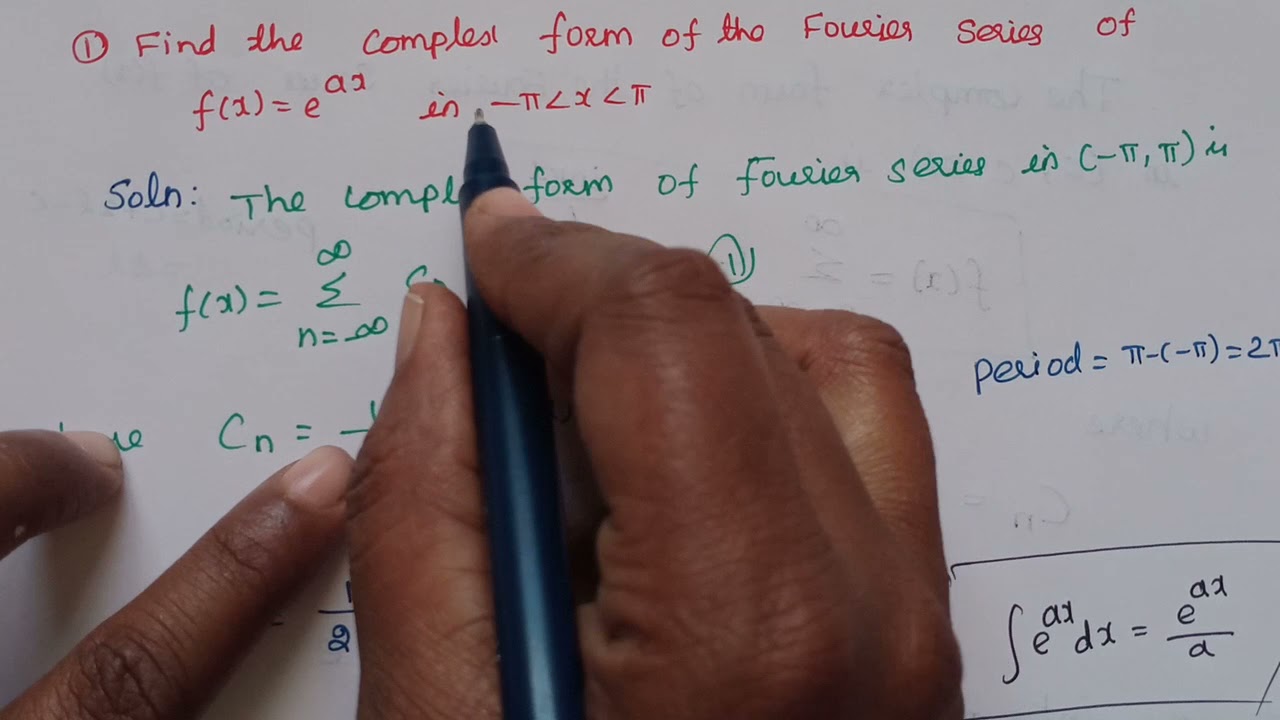 ① Find the complex form of the Fourier Series of
f(x) = e^{ax} in -π < x < π
Soln: The form of fourier series in (-π, π) is
f(x) = ∑_{n=-∞}^{∞} Cn ①
period = π-(-π) = 2π
Cn =
1/2
∫ e^{ax} dx = e^{ax}/a